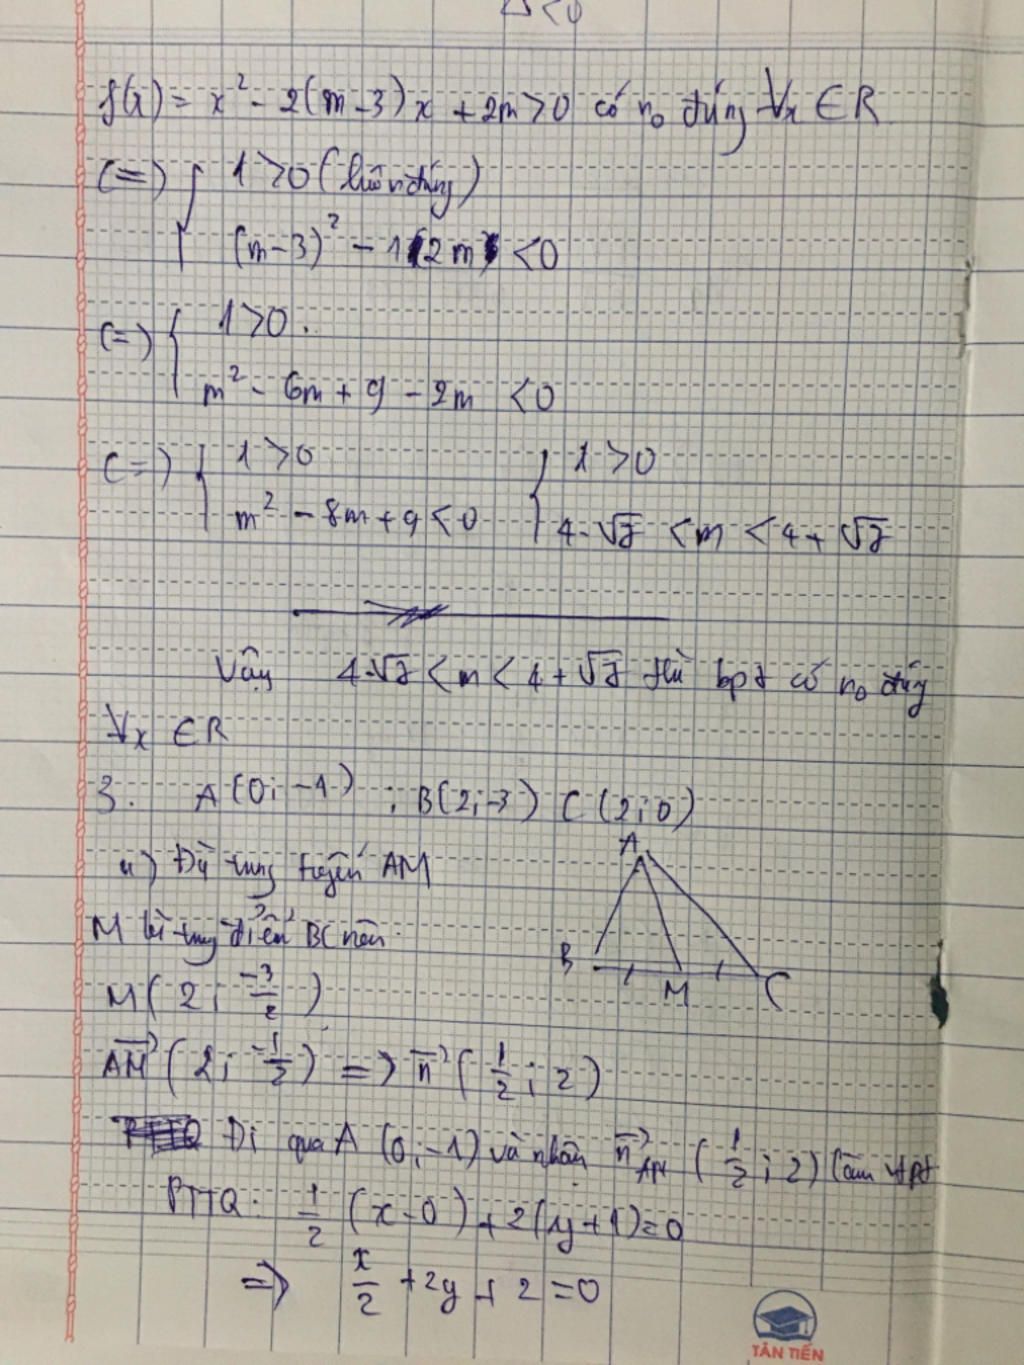 Δ<0
f(x) = x² - 2(m-3)x + 2m > 0 có n₀ đúng ∀x ∈ R
(=) { 1 > 0 (luôn đúng)
(m-3)² - 1(2m) < 0
(=) { 1 > 0.
m² - 6m + 9 - 2m < 0
(=) { 1 > 0 { 1 > 0
m² - 8m + 9 < 0 4-√7 < m < 4+√7
Vậy 4-√7 < m < 4+√7 thì bpt có n₀ đúng
∀x ∈ R
3. A(0;-1) ; B(2;-3) C(2;0)
a) Đg trung tuyến AM
M là trung điểm BC nên
M(2; -3/2)
AM→(2; -1/2) => n→(1/2; 2)
Đi qua A(0;-1) và nhận n→AM (1/2; 2) làm vtpt
PTTQ: 1/2 (x-0) + 2(y+1) = 0
=> x/2 + 2y + 2 = 0
A
B
M
C
TÂN TIẾN